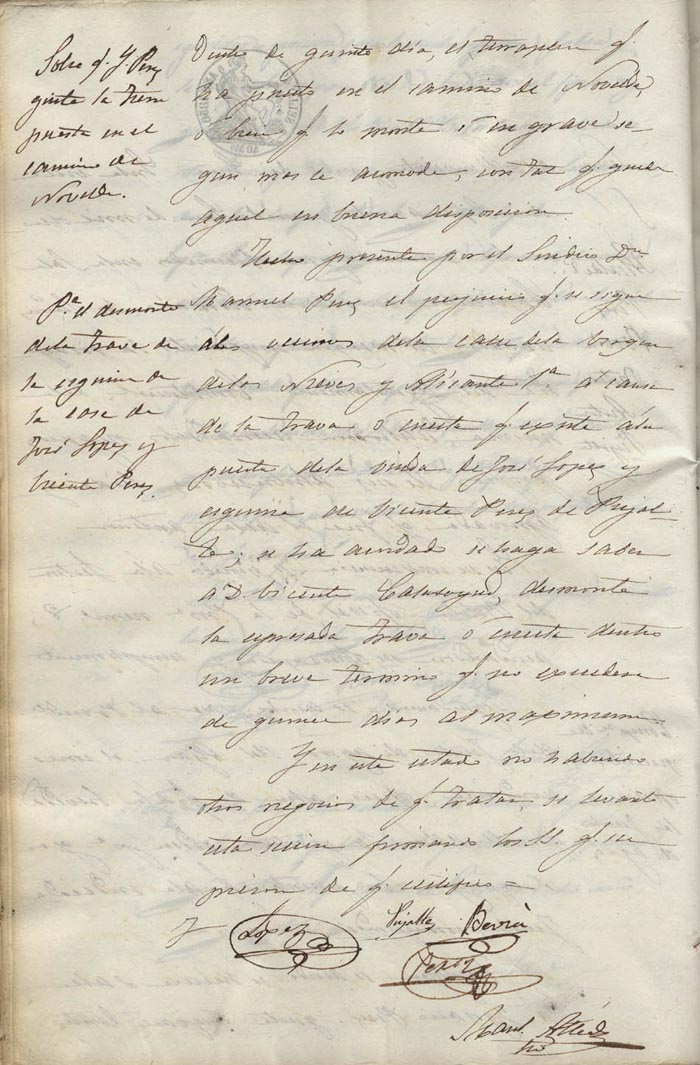 Sobre q. Y. Perez
quite la tierra
puesta en el
camino de
Novelda.
Dentro de quinto dia, el terraplen q.
ha puesto en el camino de Novelda,
ó bien q. lo monte ó en grave se
gun mas le acomode, con tal q. quede
aquel en buena disposicion.
Hecho presente por el Sindico Dn
Pa. el desmonte
dela trava de
la esquina de
la casa de
José Lopez y
Vicente Perez.
Manuel Perez el perjuicio q. se sigue
álos vecinos dela calle dela Virgen
delas Nieves y Alicante 1a. á causa
de la trava ó cuesta q. existe ála
puerta dela viuda de José Lopez y
esquina de Vicente Perez de Pujal-
te; se ha acordado se haga saber
a D. Vicente Calatayud, desmonte
la espresada trava ó cuesta dentro
un breve termino q. no excedera
de quince dias al maximum.
Y en este estado no habiendo
otros negocios de q. tratar, se levantó
esta sesion firmando los SS. q. su
pieron de q. certifico =
Lopez Pujalte
Perez
Manl.